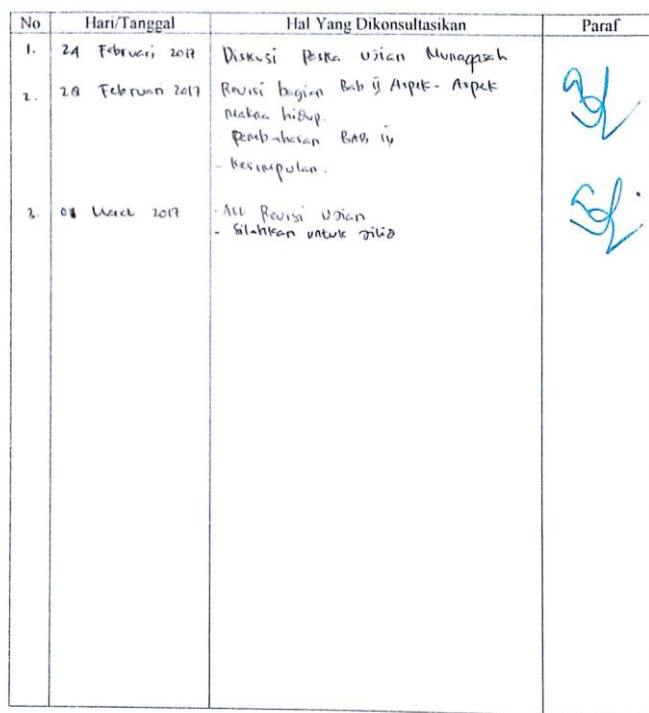 No Hari/Tanggal Hal Yang Dikonsultasikan Paraf
1. 24 Februari 2017 Diskusi Paska Ujian Munaqasah
2. 28 Februari 2017 Revisi bagian Bab ij Aspek-Aspek
Makna hidup.
Pembahasan BAB iv
- Kesimpulan.
3. 01 Maret 2017 - Acc Revisi Ujian
- Silahkan untuk Jilid